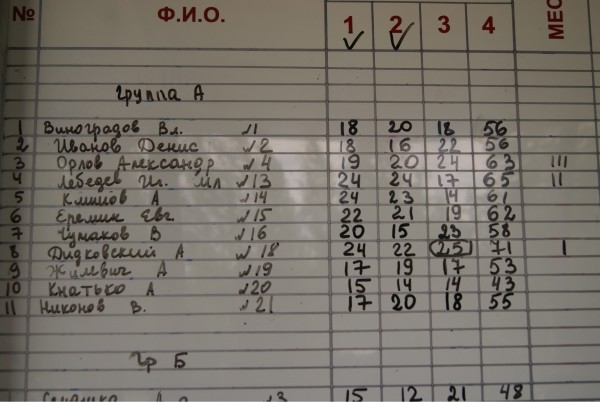 № Ф.И.О. 1 2 3 4 МЕС
Группа А
1 Виноградов Вл. №1 18 20 18 56
2 Иванов Денис №2 18 16 22 56
3 Орлов Александр №4 19 20 24 63 III
4 Лебедев №13 24 24 17 65 II
5 Климов А №14 24 23 14 61
6 Еремин Евг №15 22 21 19 62
7 Чумаков В №16 20 15 23 58
8 Дидковский А №18 24 22 25 71 I
9 Жилевич А №19 17 19 17 53
10 Кнатько А №20 15 14 14 43
11 Никонов В. №21 17 20 18 55
Гр Б
15 12 21 48